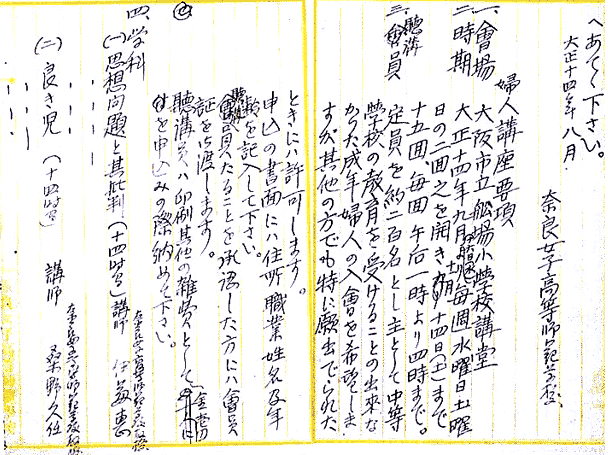 へあて下さい。
大正十四年八月
奈良女子高等師範学校
婦人講座要項
一、會場 大阪市立船場小学校講堂
二、時期 大正十四年九月 毎週水曜日土曜
日の二回之を開き 十四日(土)まで
十五回毎回午后一時より四時まで。
三、聴講員 定員を約二百名とし主として中等
学校の教育を受けることの出来な
かった成年婦人の入會を希望しま
すが其他の方でも特に願出でられた
ときにハ許可します。
申込の書面にハ住所職業姓名及年
齢を記入して下さい。
聴講員たることを承認した方にハ會員
証を御渡します。
聴講員ハ印刷其他の雑費として
を申込みの際納めて下さい。
四、学科
(一)思想問題と其批判(十四時間)講師
(二)良き児(十四時間) 講師 桑野久任